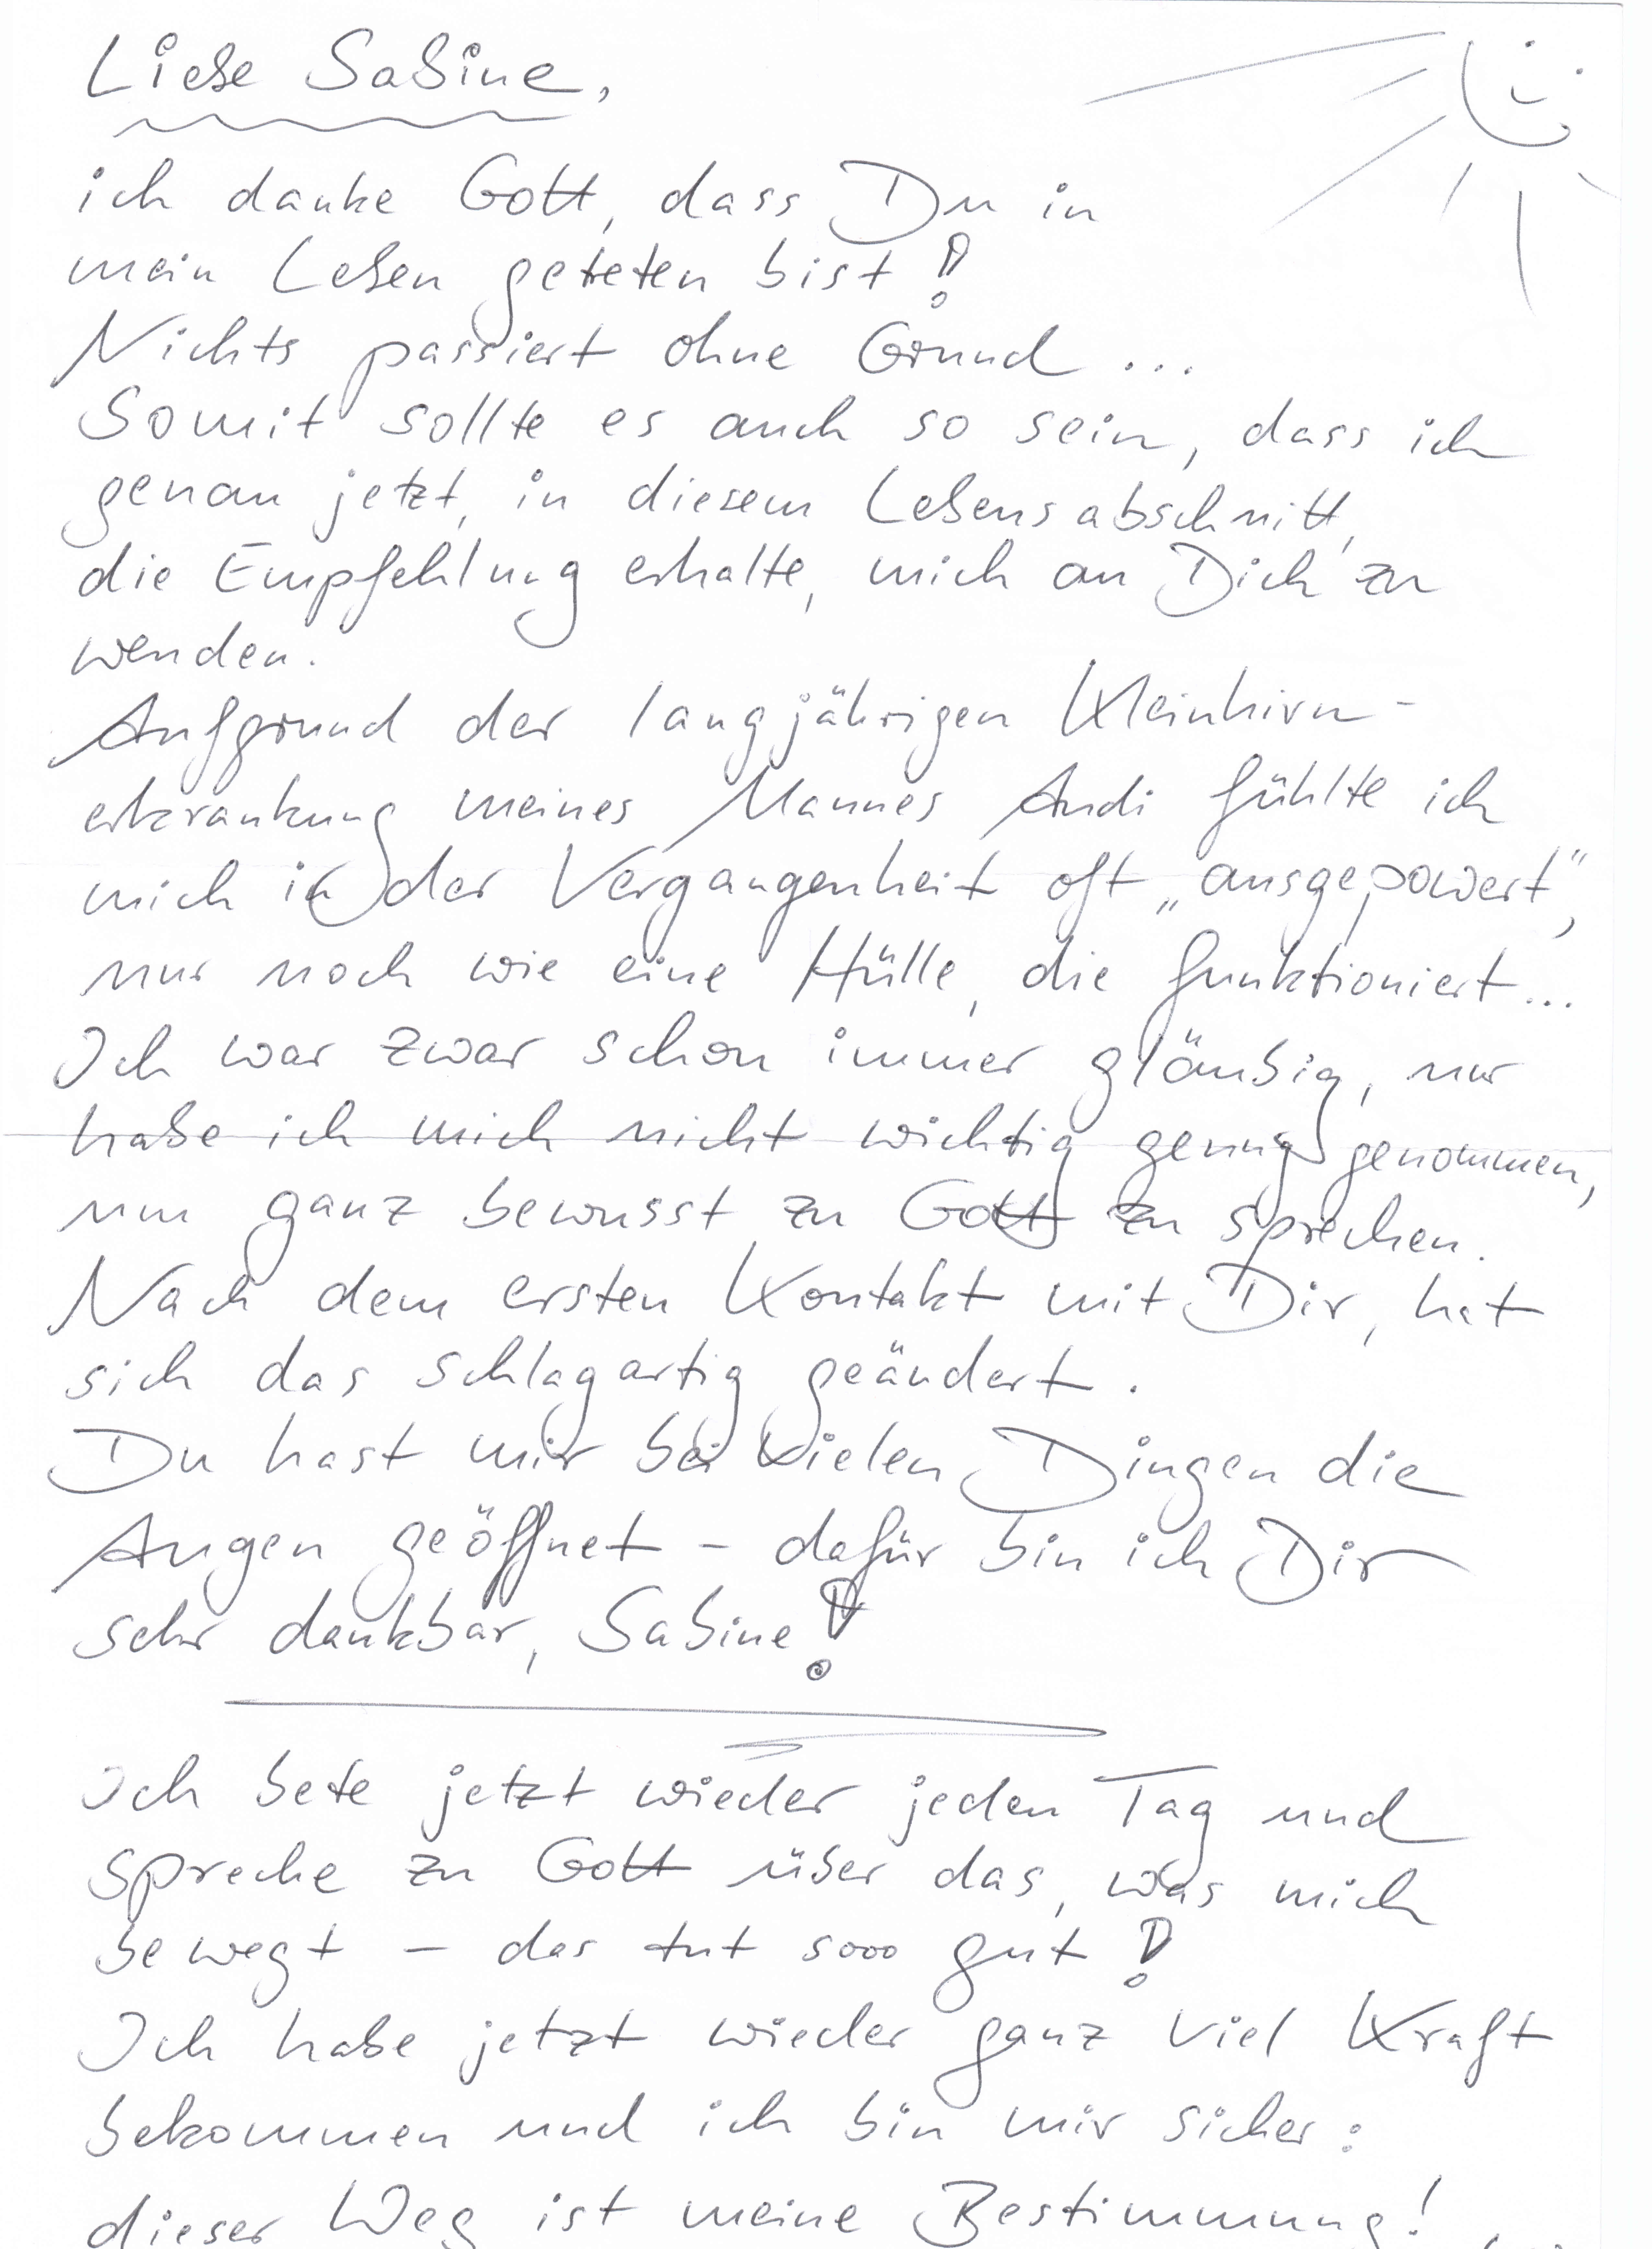 Liebe Sabine,
ich danke Gott, dass Du in
mein Leben getreten bist!
Nichts passiert ohne Grund ...
Somit sollte es auch so sein, dass ich
genau jetzt, in diesem Lebensabschnitt,
die Empfehlung erhalte, mich an Dich zu
wenden.
Aufgrund der langjährigen Kleinhirn-
erkrankung meines Mannes Andi fühlte ich
mich in der Vergangenheit oft „ausgepowert",
nur noch wie eine Hülle, die funktioniert...
Ich war zwar schon immer gläubig, nur
habe ich mich nicht wichtig genug genommen,
um ganz bewusst zu Gott zu sprechen.
Nach dem ersten Kontakt mit Dir, hat
sich das schlagartig geändert.
Du hast mir bei vielen Dingen die
Augen geöffnet – dafür bin ich Dir
sehr dankbar, Sabine!
Ich bete jetzt wieder jeden Tag und
spreche zu Gott über das, was mich
bewegt – das tut sooo gut!
Ich habe jetzt wieder ganz viel Kraft
bekommen und ich bin mir sicher:
dieser Weg ist meine Bestimmung!